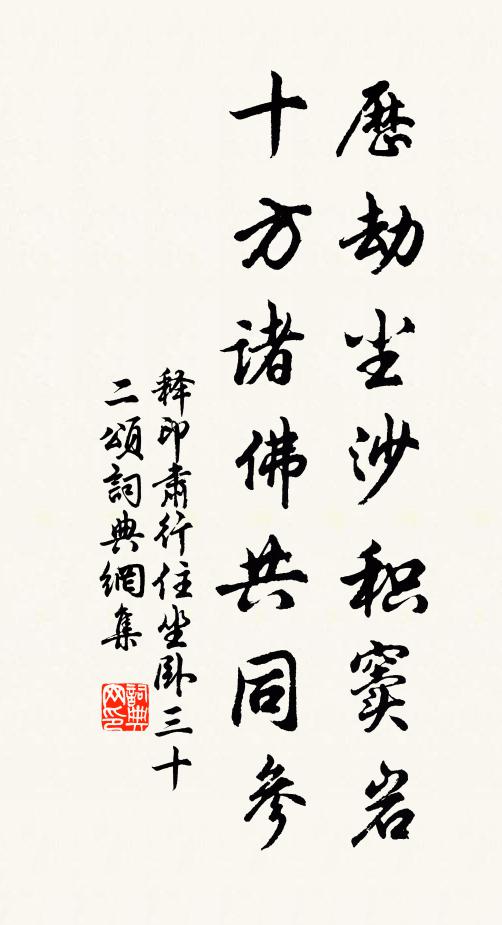 歷劫尘沙积窦岩
十方诸佛共同参
释印肃行住坐卧三十
二頌詞典網集
詞典
网印